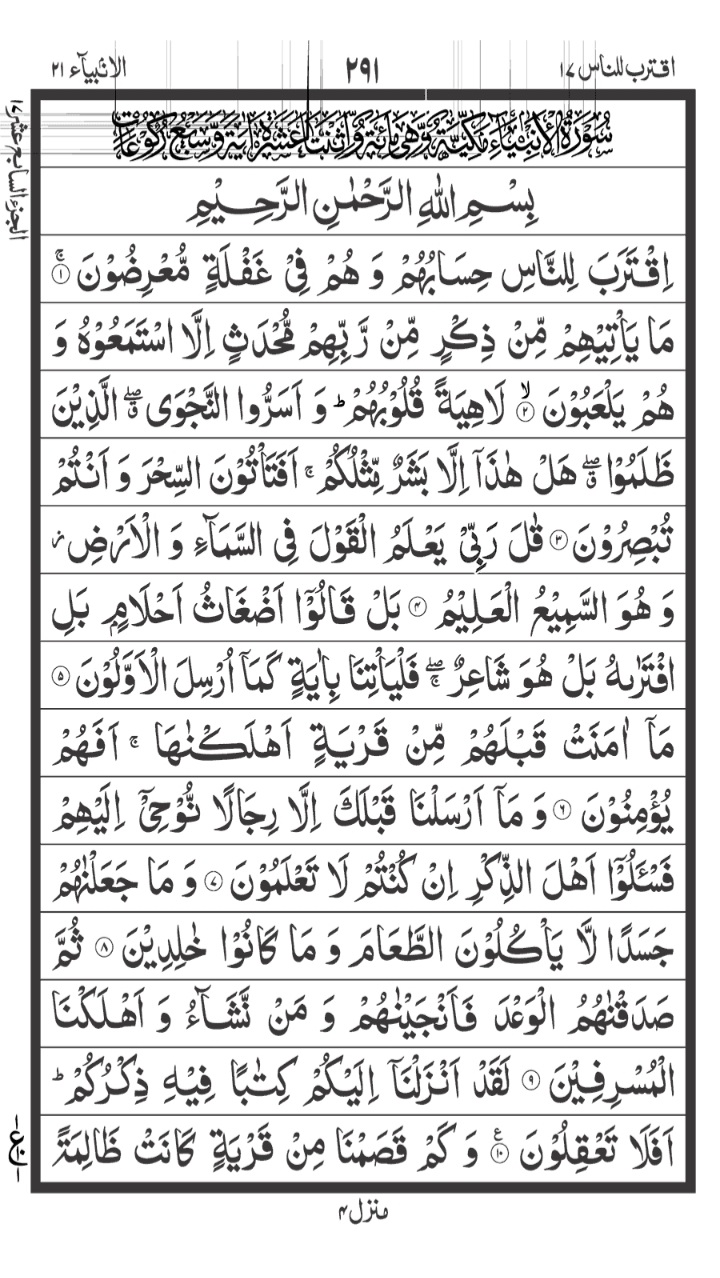 الانبيآء ٢١ ٢٩١ اقترب للناس ١٧
الجزء السابع عشر ١٧
سُوْرَةُ الْاَنْبِيَآءِ مَكِّيَّةٌ وَّهِىَ مِائَةٌ وَّاثْنَتَا عَشَرَةَ اٰيَةً وَّسَبْعُ رُكُوْعَاتٍ
بِسْمِ اللهِ الرَّحْمٰنِ الرَّحِيْمِ
اِقْتَرَبَ لِلنَّاسِ حِسَابُهُمْ وَ هُمْ فِيْ غَفْلَةٍ مُّعْرِضُوْنَ ۚ ١
مَا يَاْتِيْهِمْ مِّنْ ذِكْرٍ مِّنْ رَّبِّهِمْ مُّحْدَثٍ اِلَّا اسْتَمَعُوْهُ وَ
هُمْ يَلْعَبُوْنَ ۙ ٢ لَاهِيَةً قُلُوْبُهُمْ ؕ وَ اَسَرُّوا النَّجْوَى ۖۗ الَّذِيْنَ
ظَلَمُوْا ۖۗ هَلْ هٰذَاۤ اِلَّا بَشَرٌ مِّثْلُكُمْ ۚ اَفَتَاْتُوْنَ السِّحْرَ وَ اَنْتُمْ
تُبْصِرُوْنَ ٣ قٰلَ رَبِّيْ يَعْلَمُ الْقَوْلَ فِي السَّمَآءِ وَ الْاَرْضِ ؗ
وَ هُوَ السَّمِيْعُ الْعَلِيْمُ ٤ بَلْ قَالُوْۤا اَضْغَاثُ اَحْلَامٍۭ بَلِ
افْتَرٰىهُ بَلْ هُوَ شَاعِرٌ ۖۚ فَلْيَاْتِنَا بِاٰيَةٍ كَمَاۤ اُرْسِلَ الْاَوَّلُوْنَ ٥
مَاۤ اٰمَنَتْ قَبْلَهُمْ مِّنْ قَرْيَةٍ اَهْلَكْنٰهَا ۚ اَفَهُمْ
يُؤْمِنُوْنَ ٦ وَ مَاۤ اَرْسَلْنَا قَبْلَكَ اِلَّا رِجَالًا نُّوْحِيْۤ اِلَيْهِمْ
فَسْـَٔلُوْۤا اَهْلَ الذِّكْرِ اِنْ كُنْتُمْ لَا تَعْلَمُوْنَ ٧ وَ مَا جَعَلْنٰهُمْ
جَسَدًا لَّا يَاْكُلُوْنَ الطَّعَامَ وَ مَا كَانُوْا خٰلِدِيْنَ ٨ ثُمَّ
صَدَقْنٰهُمُ الْوَعْدَ فَاَنْجَيْنٰهُمْ وَ مَنْ نَّشَآءُ وَ اَهْلَكْنَا
الْمُسْرِفِيْنَ ٩ لَقَدْ اَنْزَلْنَاۤ اِلَيْكُمْ كِتٰبًا فِيْهِ ذِكْرُكُمْ ؕ
اَفَلَا تَعْقِلُوْنَ ١٠ ع وَ كَمْ قَصَمْنَا مِنْ قَرْيَةٍ كَانَتْ ظَالِمَةً
منزل ٤